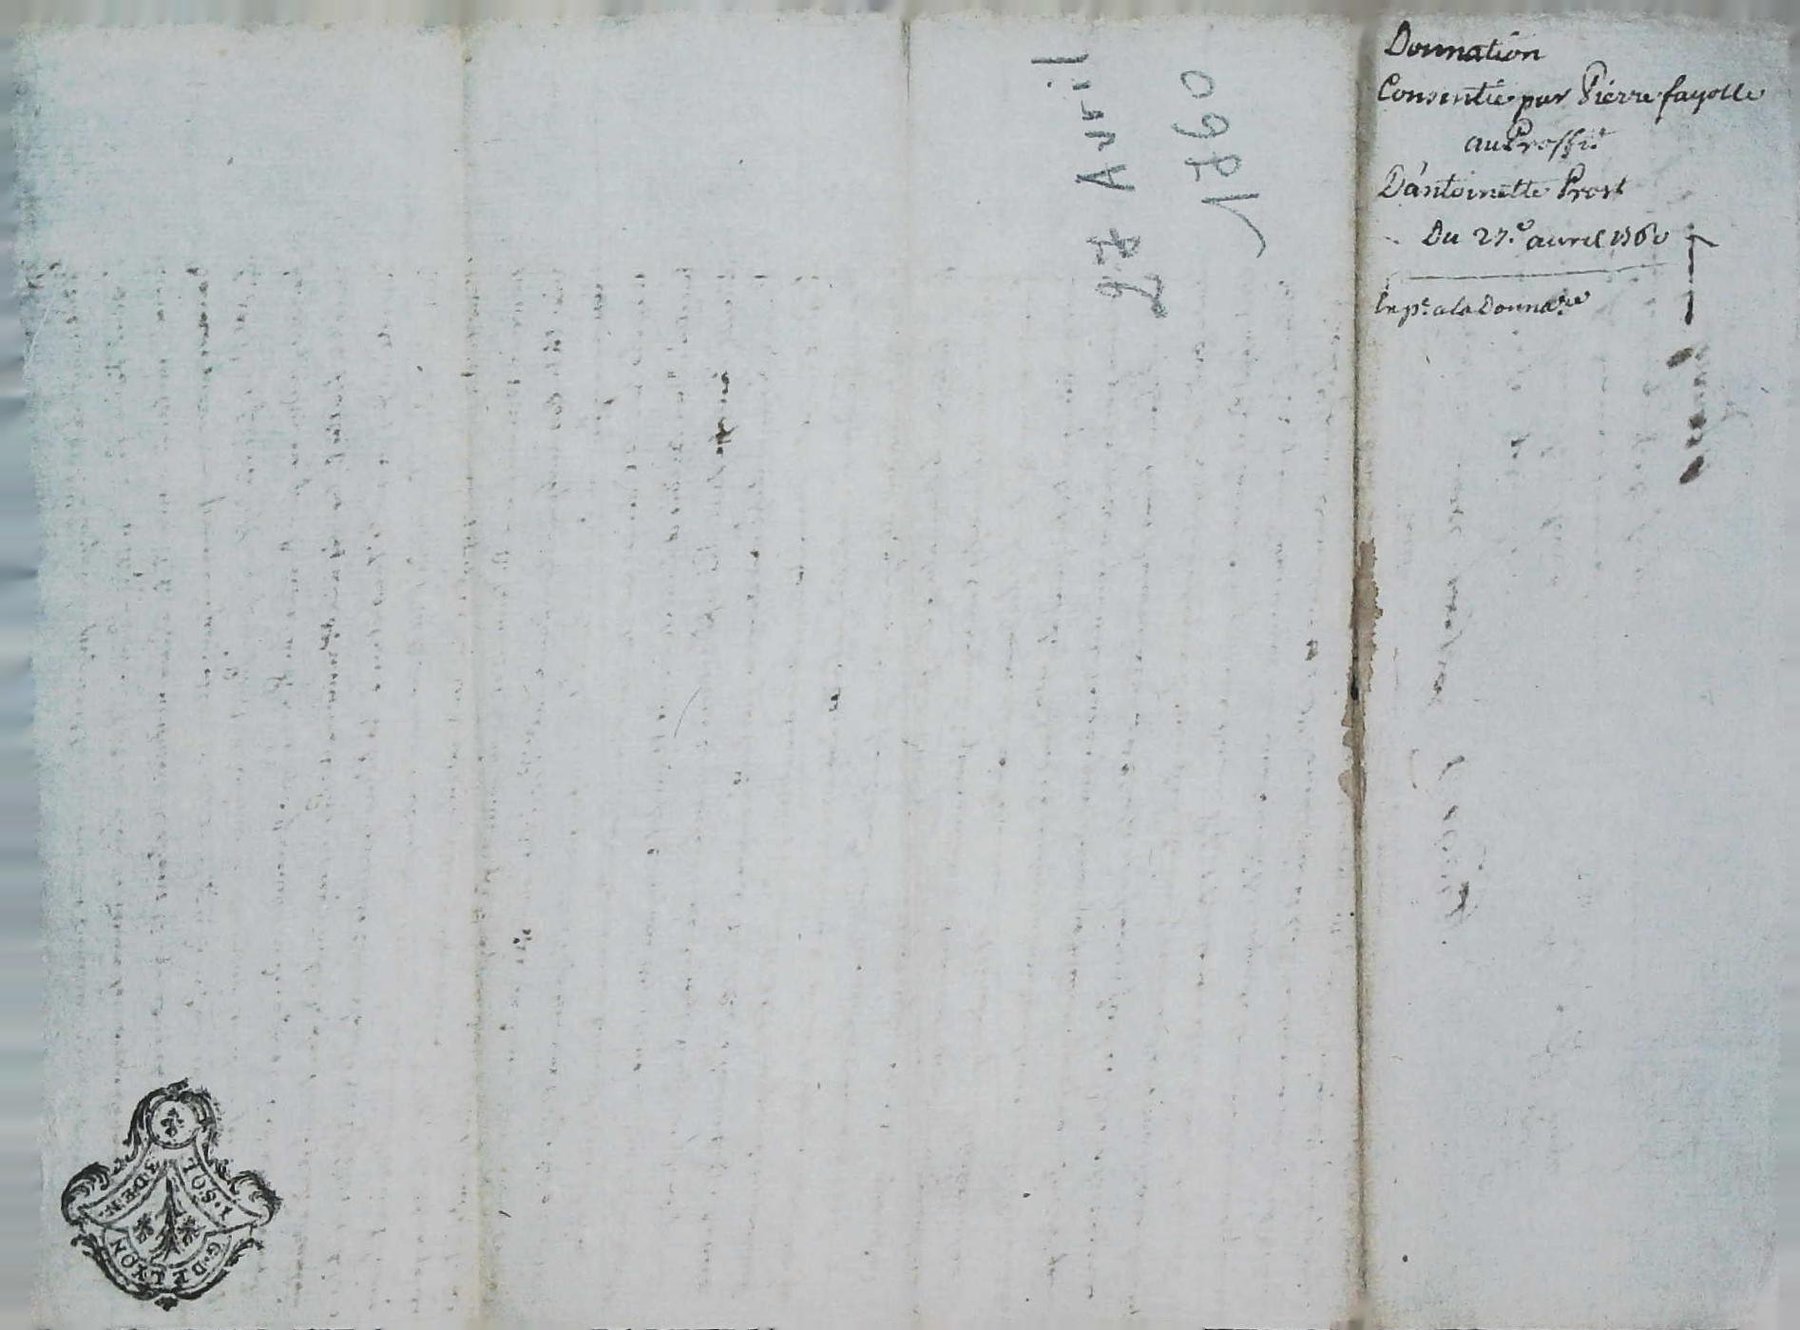 Donnation
Consentie par Pierre fayolle
au Proffit
D'antoinette Prost
Du 27.e avril 1760
Exp.e a la Donnar.e
27 Avril
1760
1. SOL
3. DEN.
G. DE LYON